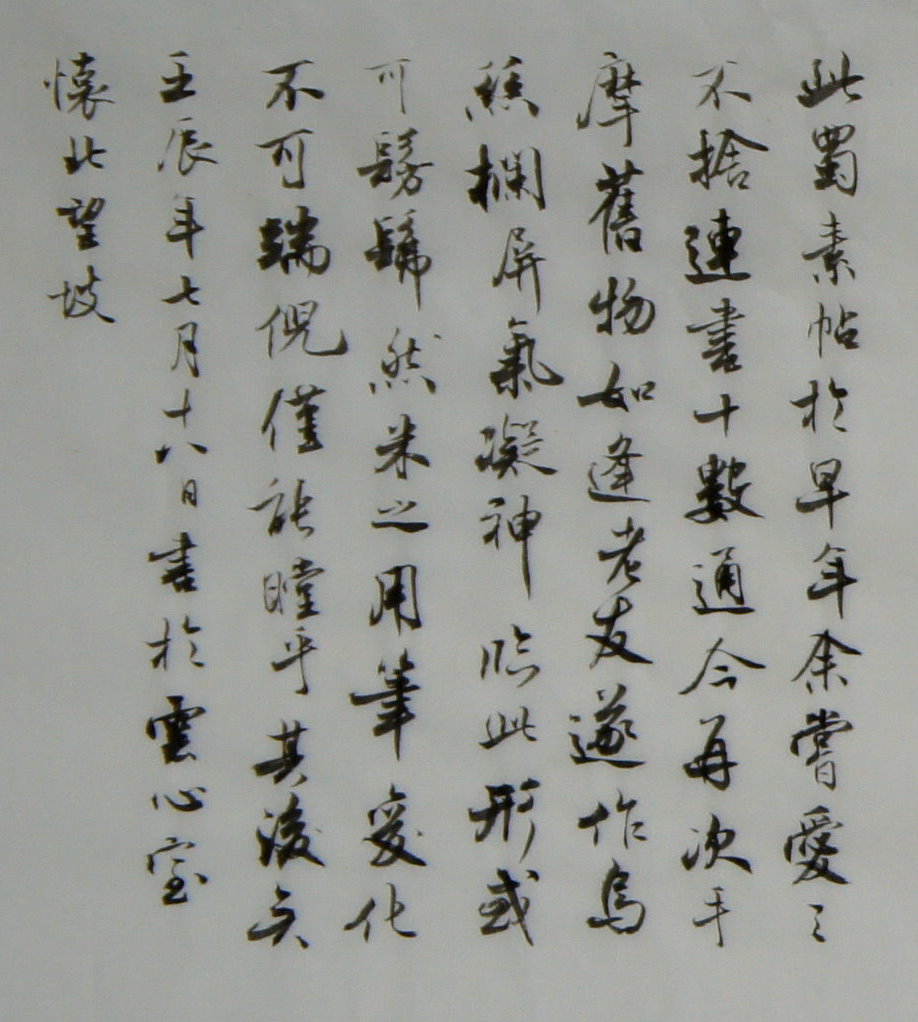 此蜀素帖於早年余嘗愛之
不捨連書十數通今再次手
摩舊物如逢老友遂作烏
絲欄屏氣凝神臨此形或
可髣髴然米之用筆變化
不可端倪僅能瞠乎其後矣
壬辰年七月十八日書於雲心室
懷北望坡